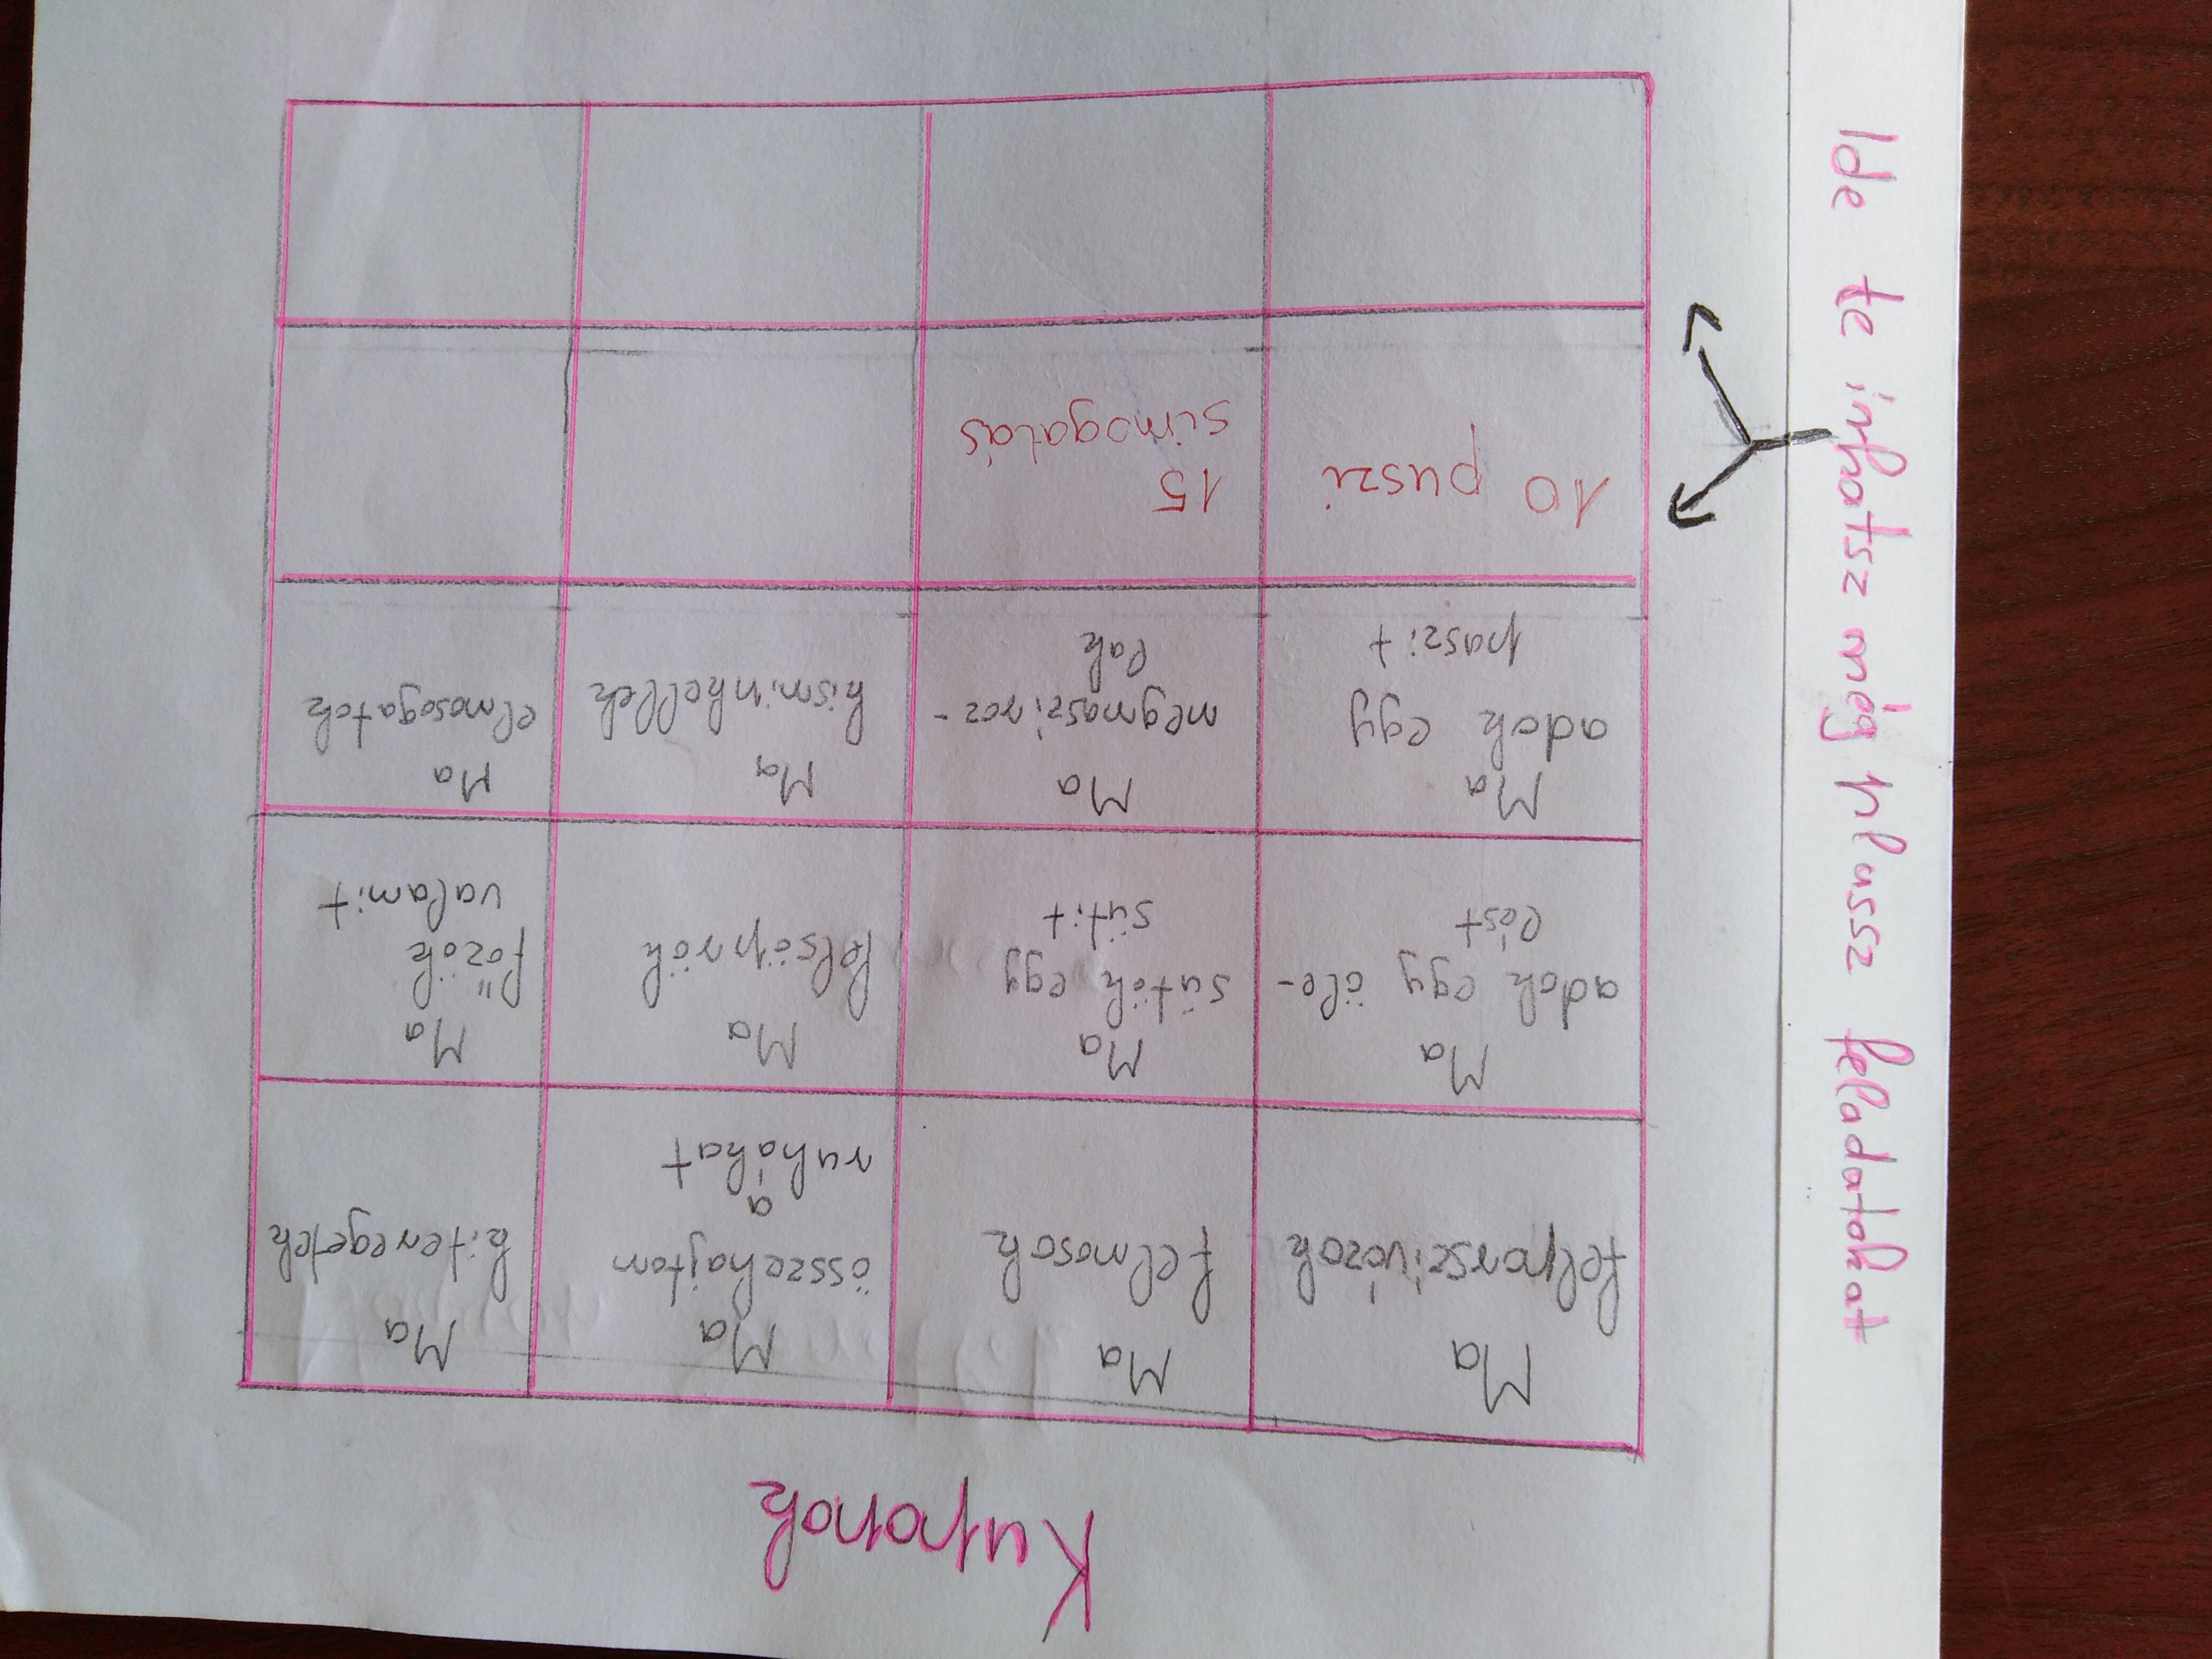 Kuponok
Ma
felporszivózok
Ma
felmosok
Ma
összehajtom
a
ruhákat
Ma
kiteregetek
Ma
adok egy öle-
lést
Ma
sütök egy
sütit
Ma
felsöprök
Ma
főzök
valamit
Ma
adok egy
puszit
Ma
megmasziroz-
lak
Ma
kisminkellek
Ma
elmosogatok
10 puszi
15
simogatás
Ide te írhatsz még plussz feladatokat